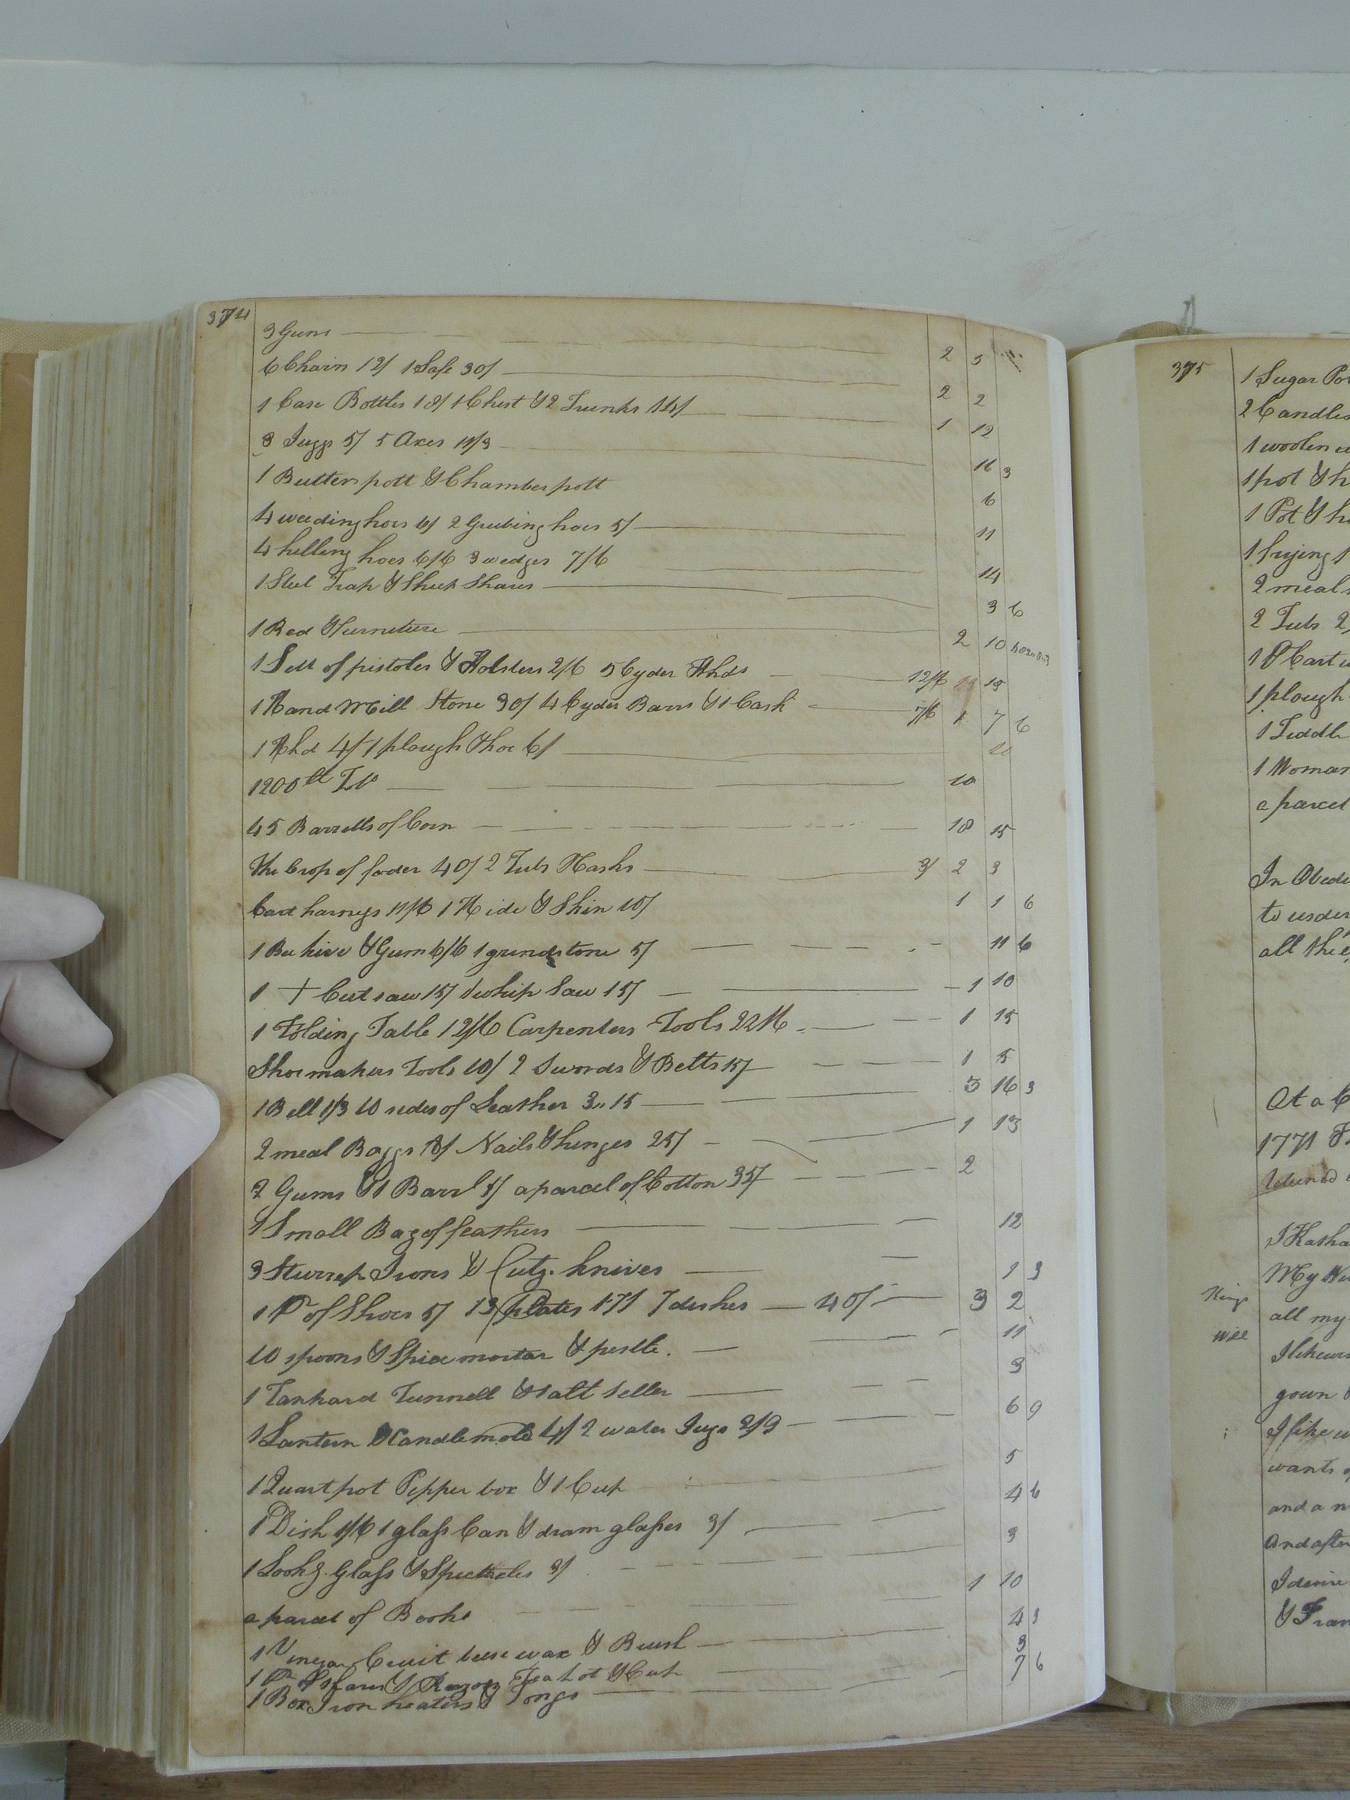 374
3 Guns 2 5
6 Chairs 12/ 1 Safe 30/ 2 2
1 Case Bottles 18/ 1 Chest & 2 Trunks 14/ 1 12
3 Juggs 5/ 5 Axes 11/3 16 3
1 Butter pott & Chamber pott 6
4 weeding hoes 6/ 2 Grubing hoes 5/ 11
4 hilling hoes 6/6 3 wedges 7/6 14
1 Steel Trap & Sheep Shares 3 6
1 Bed & furneture 2 10
1 Sett of pistoles & Holsters 2/6 5 Cyder Hhds 12/6 15
1 Hand Mill Stone 30/ 4 Cyder Barrs & 1 Cask 7/6 1 7 6
1 Hhd 4/ 1 plough & hoe 6/ 10
1200 lb Tob 10
45 Barrells of Corn 18 15
the Crop of foder 40/ 2 Tubs & Casks 3/ 2 3
Cart harness 11/6 1 Hide & Skin 10/ 1 1 6
1 Bee hive & Gum 6/6 1 grindstone 5/ 11 6
1 + Cut saw 15/ 1 whip Saw 15/ 1 10
1 Folding Table 12/6 Carpenters Tools 22/6 1 15
Shoemakers Tools 10/ 2 Swords & Belts 15/ 1 5
1 Bell 1/3 10 sides of Leather 3..15 3 16 3
2 meal Baggs 8/ Nails & hinges 25/ 1 13
2 Gums & 1 Barrl 5/ a parcel of Cotton 35/ 2
1 Small Bag of feathers 12
3 Sturrep Irons & Cutg. knives 1 3
1 Pr of Shoes 5/ 13 plates 17/ 7 dishes 40/ 3 2
10 spoons & Spice mortar & pestle. 11
1 Tankard Tunnell & Salt Seller 3
1 Lantern & Candlemold 4/ 2 water Jugs 2/9 6 9
1 Quart pot Pepper box & 1 Cup 5
1 Dish 1/6 1 glass Can & dram glasses 3/ 4 6
1 Lookg. Glass & Spectcles 3/ 3
a parcel of Books 1 10
1 Vinegar Cruit bees wax & Brush 4 3
1 Pr & Razor Tea pot & Cup 3
1 Box Iron heaters & Tongs 7 6
375
1 Sugar
2 Candles
1 woolen
1 pot & h
1 Pot & h
1 frying
2 meal
2 Tubs 2
1 Cart
1 plough
1 Fiddle
1 Woman
a parcel
In Obedi
to us
all the
At a C
1771
I
My
all my
I likewis
gown
I likew
wants
and a
And after
I desire
& Fran
Kings
Will